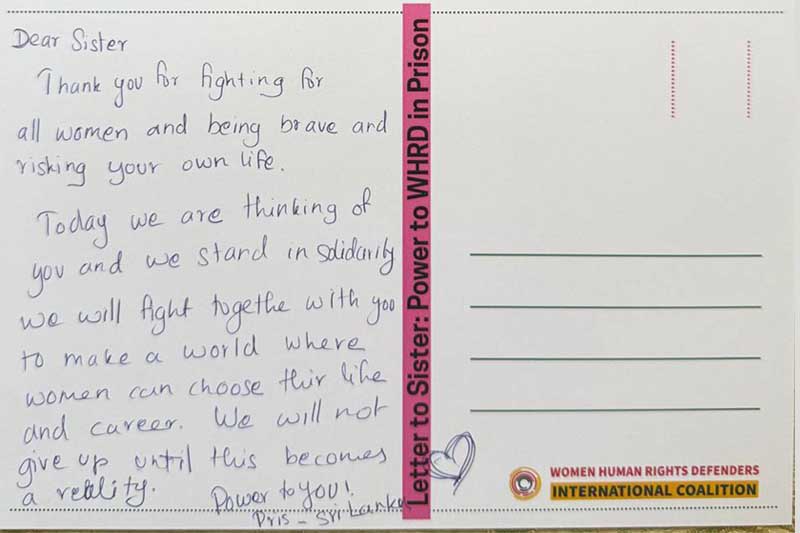 Dear Sister
Thank you for fighting for
all women and being brave and
risking your own life.
Today we are thinking of
you and we stand in solidarity
we will fight togethe with you
to make a world where
women can choose thir life
and career. We will not
give up until this becomes
a reality.
Power to YOU!
Pris - Sri Lanka
Letter to Sister: Power to WHRD in Prison
WOMEN HUMAN RIGHTS DEFENDERS
INTERNATIONAL COALITION